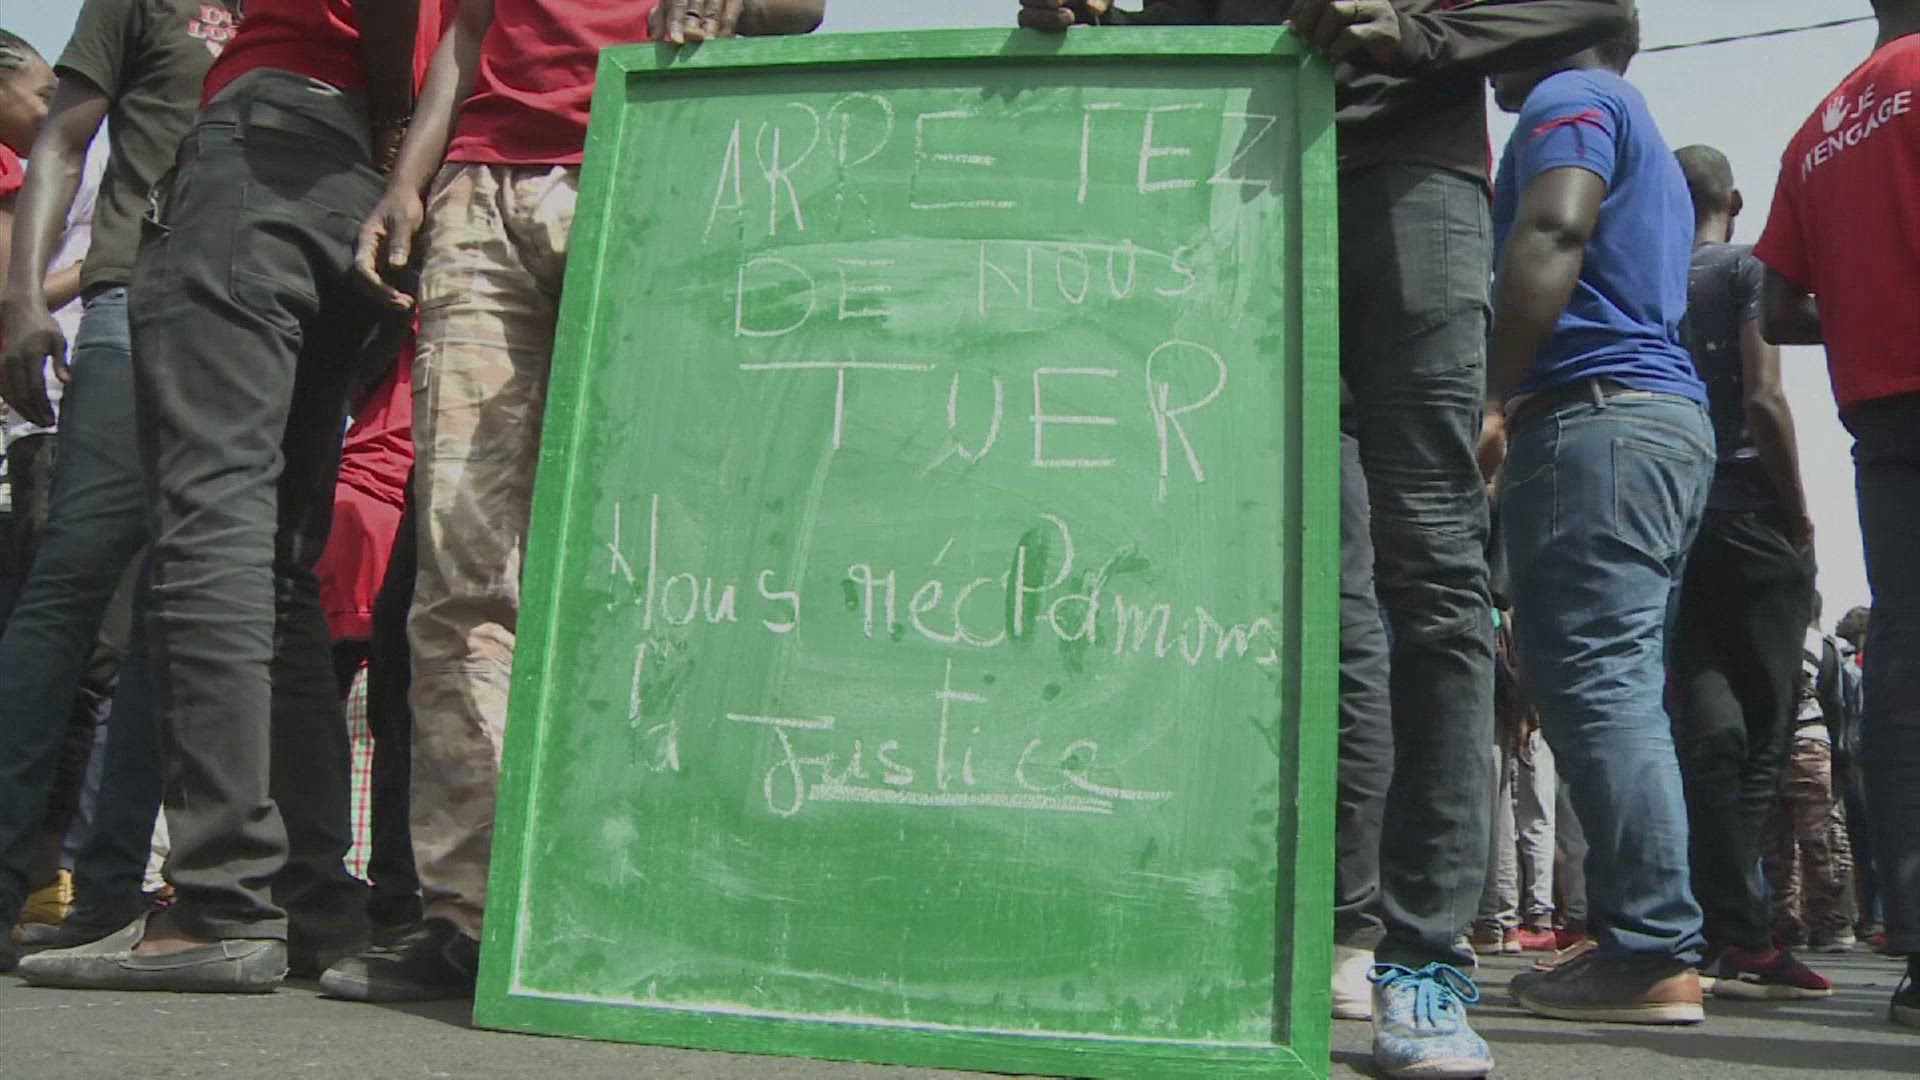 ARRETEZ
DE NOUS
TUER
Nous réclamons
la Justice
JE
M'ENGAGE